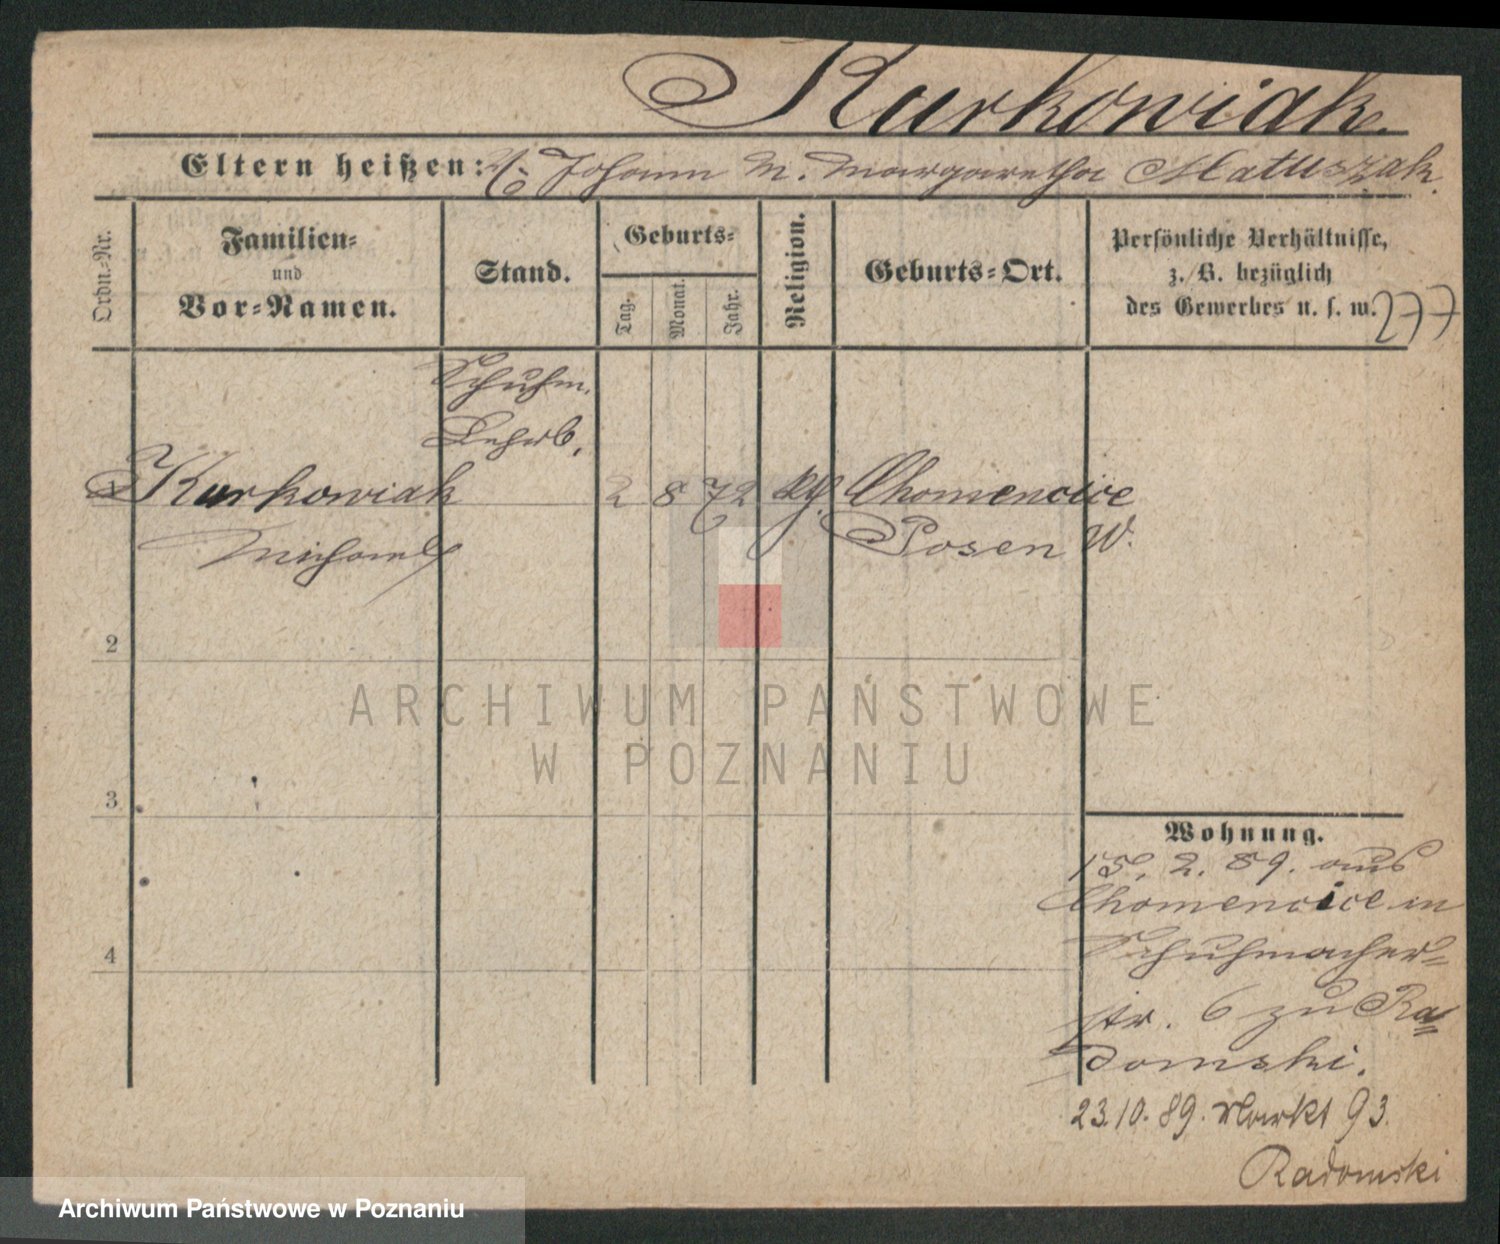 Kurkowiak.
Eltern heißen: V. Johann M. Margaretha Matuszak.
Ordn.-Nr.
Familien-
und
Vor-Namen.
Stand.
Geburts-
Tag.
Monat.
Jahr.
Religion.
Geburts-Ort.
Persönliche Verhältnisse,
z. B. bezüglich
des Gewerbes u. s. w.
277
Schuhm.
Lehrb.
1 Kurkowiak 2 8 72 kg. Chomencice
Michael Posen W.
2
3
4
Wohnung.
15. 2. 89. aus
Chomencice in
Schuhmacher-
str. 6 zu Ra-
domski.
23.10.89. Markt 93.
Radomski
ARCHIWUM PAŃSTWOWE
W POZNANIU
Archiwum Państwowe w Poznaniu